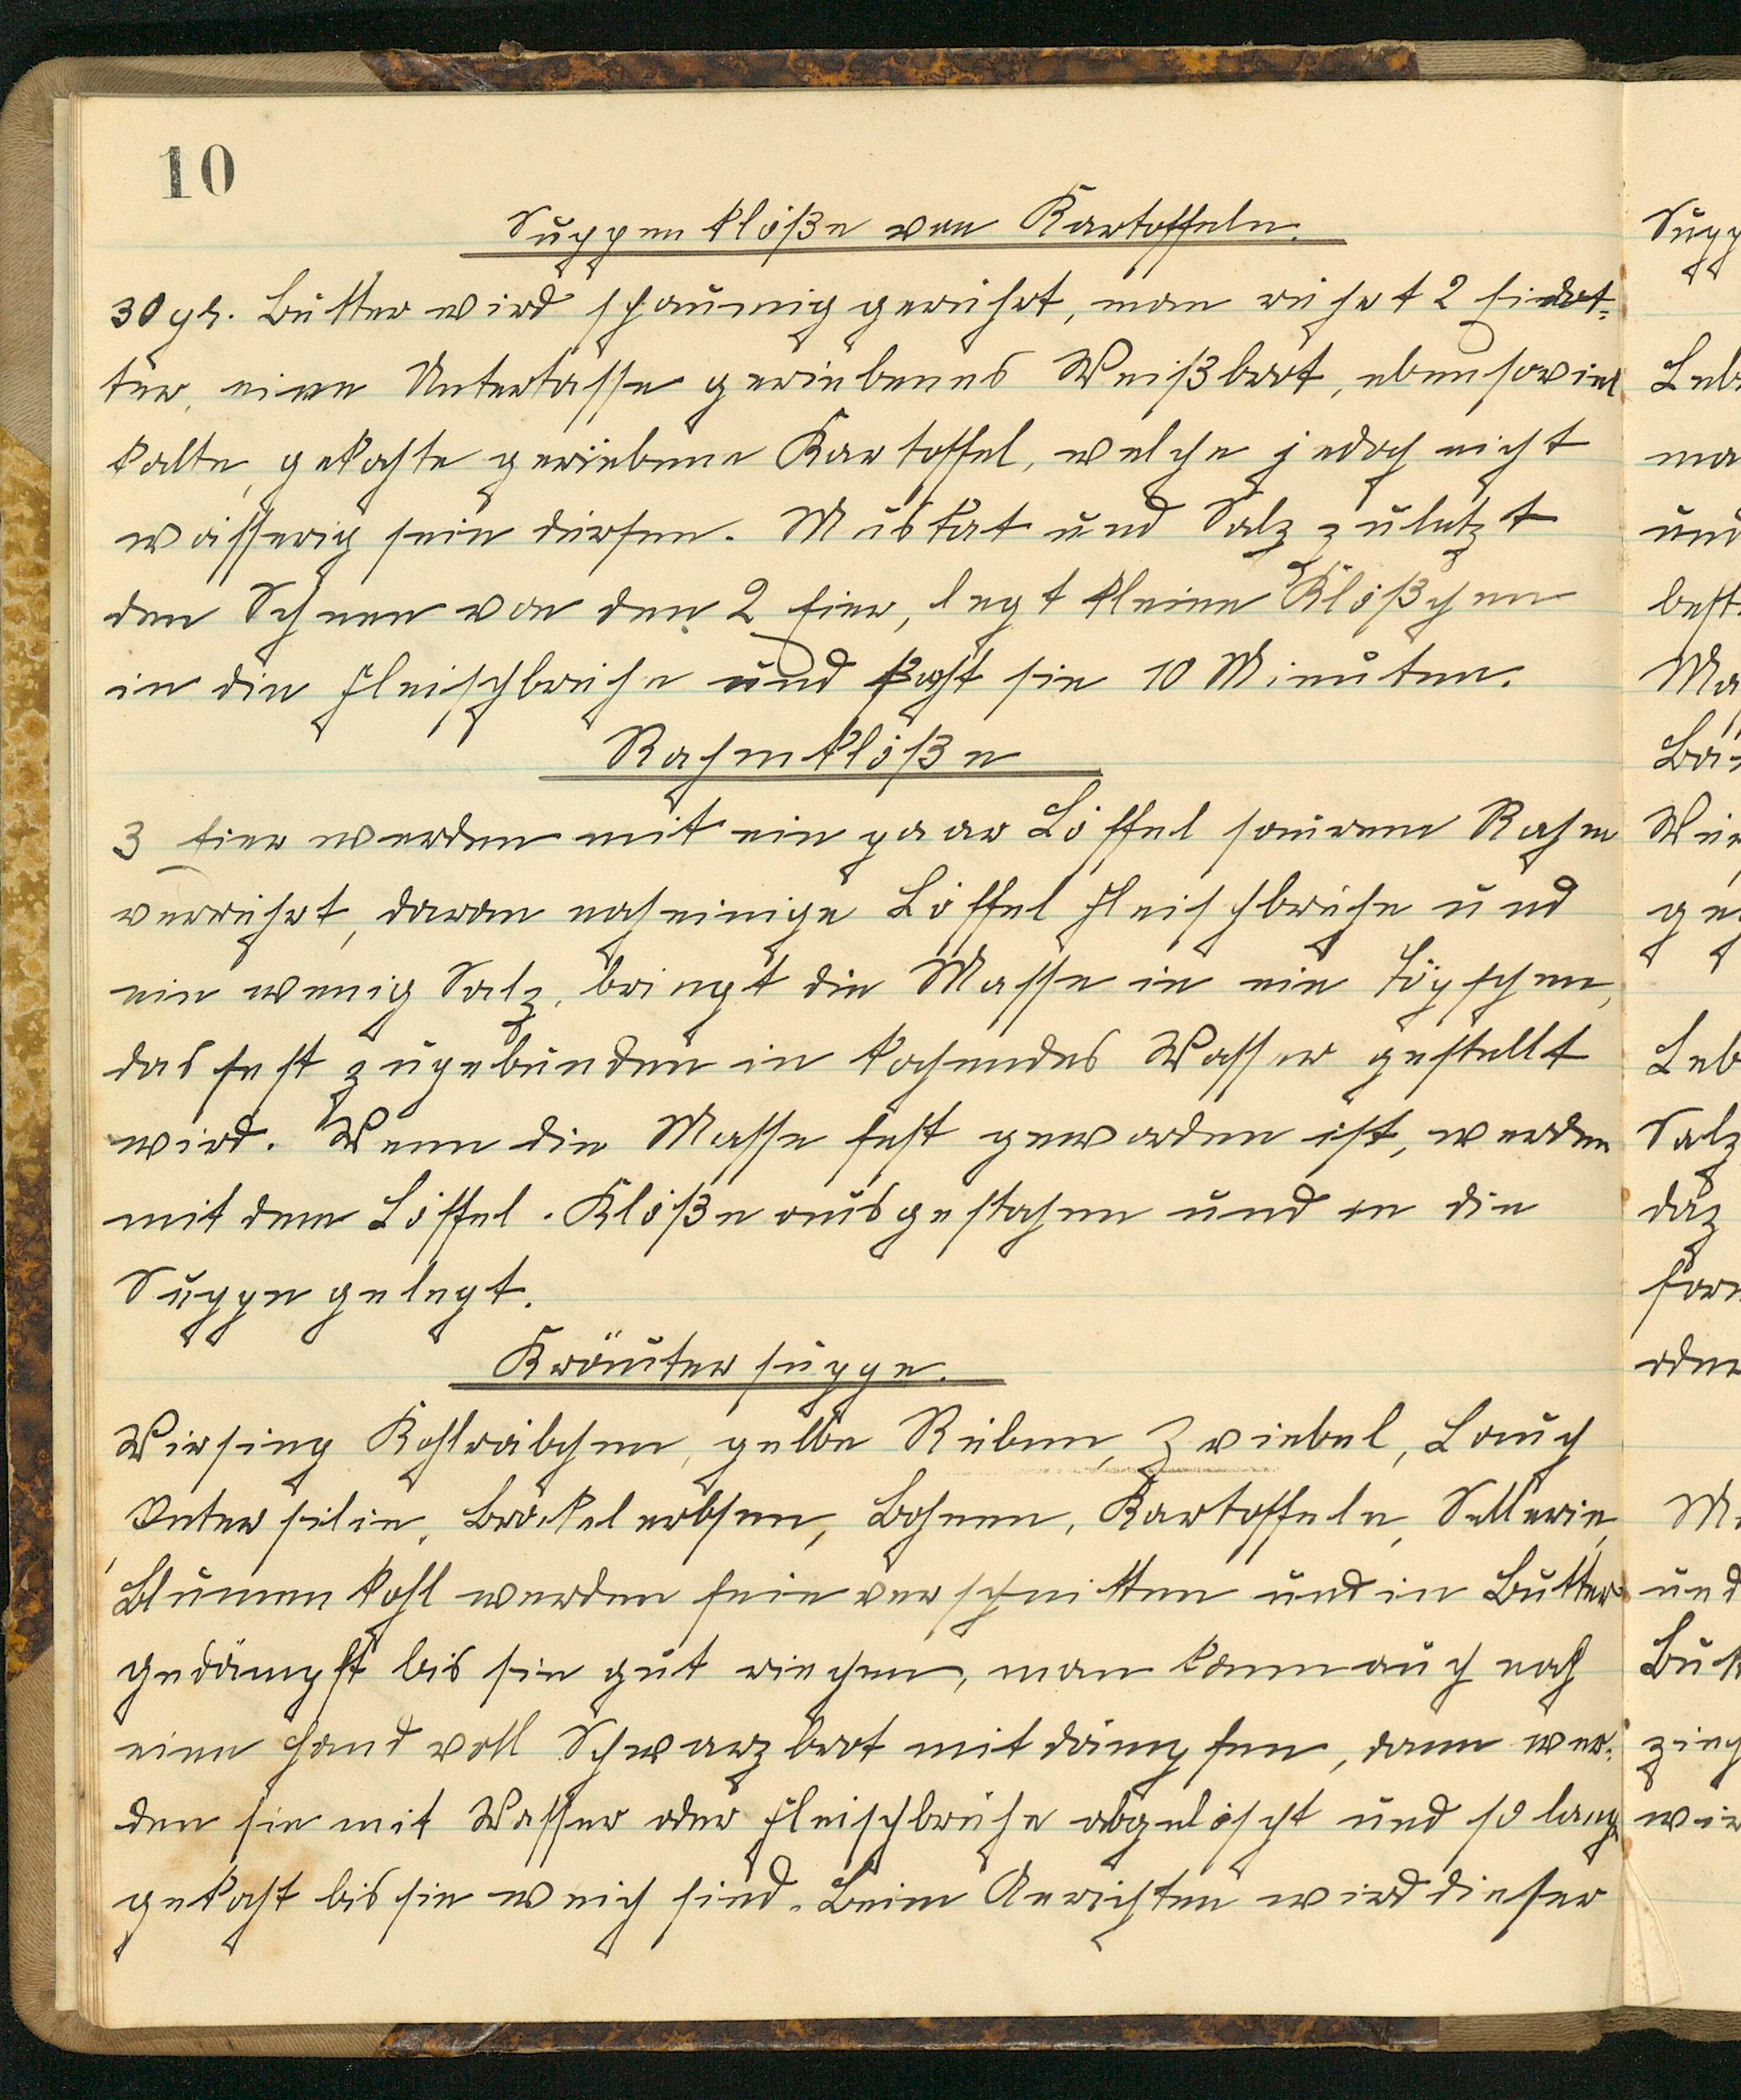 10
Suppenklöße von Kartoffeln.
30 gr. Butter wird schaumig gerührt, man rührt 2 Eidot-
ter, eine Untertasse geriebenes Weißbrot, ebensoviel
kalte, gekochte geriebene Kartoffel, welche jedoch nicht
wässerig sein dürfen. Muskat und Salz zuletzt
den Schnee von den 2 Eier, legt kleine Klößchen
in die Fleischbrühe und kocht sie 10 Minuten.
Rahmklöße
3 Eier werden mit ein paar Löffel saurem Rahm
verrührt, daran noch einige Löffel Fleischbrühe und
ein wenig Salz, bringt die Masse in ein Töpfchen,
das fest zugebunden in kochendes Wasser gestellt
wird. Wenn die Masse fest geworden ist, werden
mit dem Löffel Klöße ausgestochen und in die
Suppe gelegt.
Kräutersuppe.
Wirsing Kohlräbchen, gelbe Rüben, Zwiebel, Lauch
Petersilie, Brockelerbsen, Bohnen, Kartoffeln, Sellerie,
Blumenkohl werden fein verschnitten und in Butter
gedämpft bis sie gut riechen, man kann auch noch
eine Hand voll Schwarzbrot mitdämpfen, dann wer-
den sie mit Wasser oder Fleischbrühe abgelöscht und so lang
gekocht bis sie weich sind. Beim Anrichten wird dieser